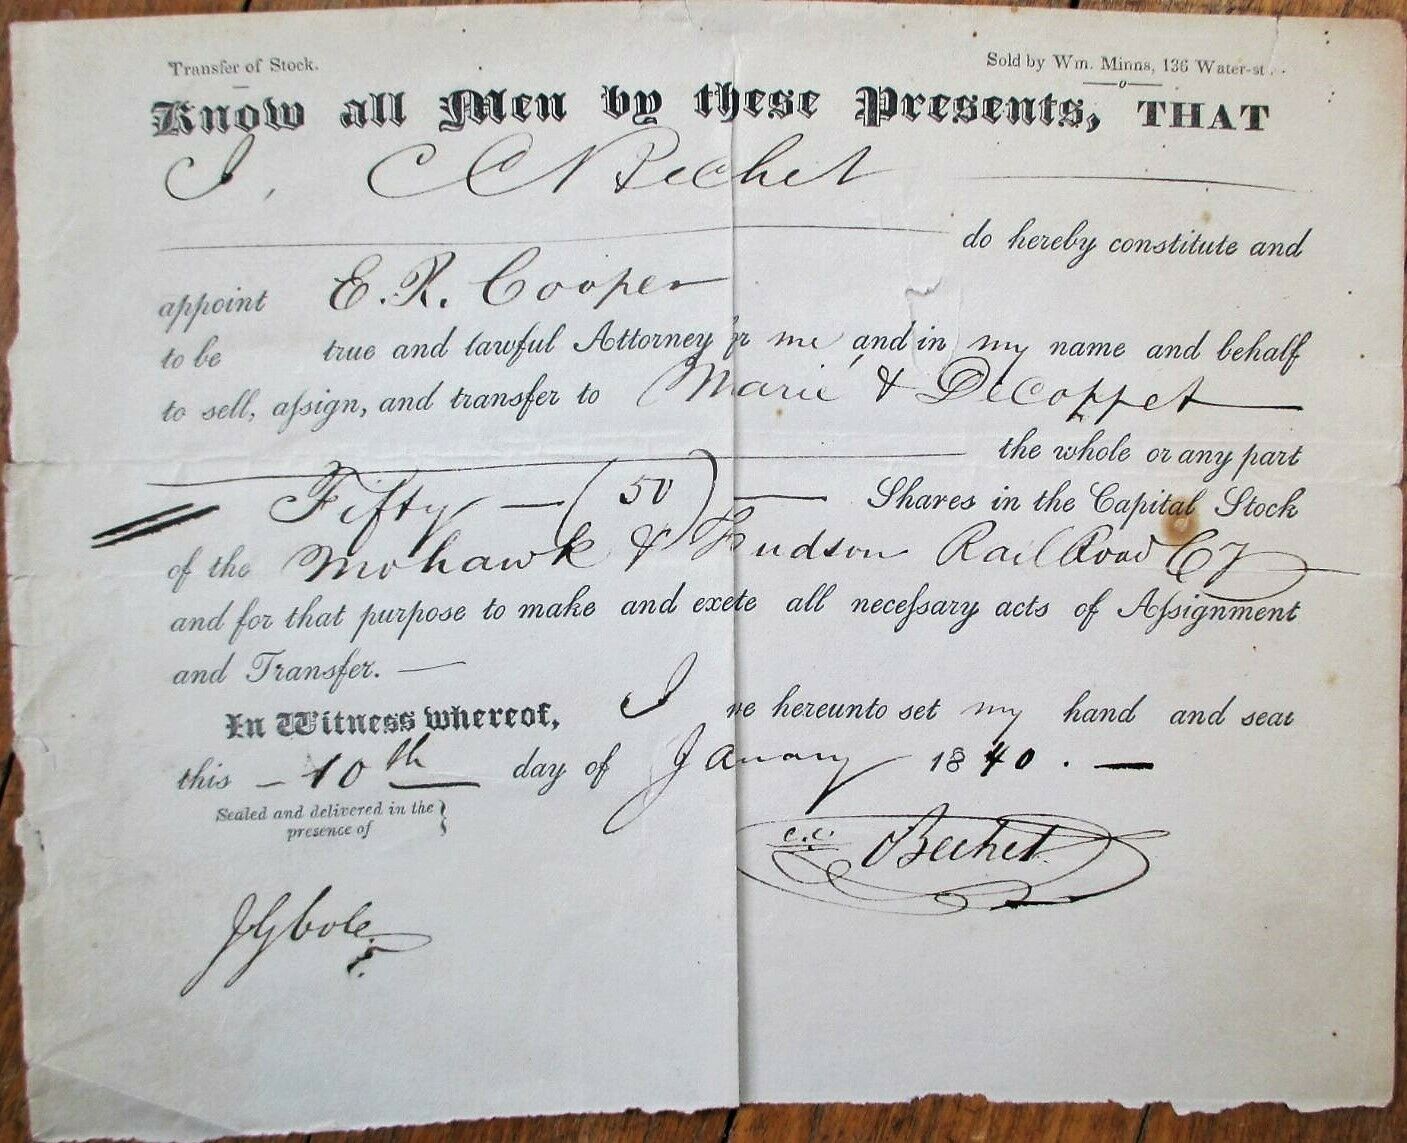 Transfer of Stock.
Sold by Wm. Minns, 136 Water-st.
Know all Men by these Presents, THAT
I, C C Bechet
do hereby constitute and
appoint E. R. Cooper
to be true and lawful Attorney for me and in my name and behalf
to sell, assign, and transfer to Marie & DeCoppet
the whole or any part
Fifty (50) Shares in the Capital Stock
of the Mohawk & Hudson Rail Road Cy
and for that purpose to make and exete all necessary acts of Assignment
and Transfer.
In Witness whereof, I ve hereunto set my hand and seal
this 10th day of January 1840.
Sealed and delivered in the
presence of
C.C. Bechet